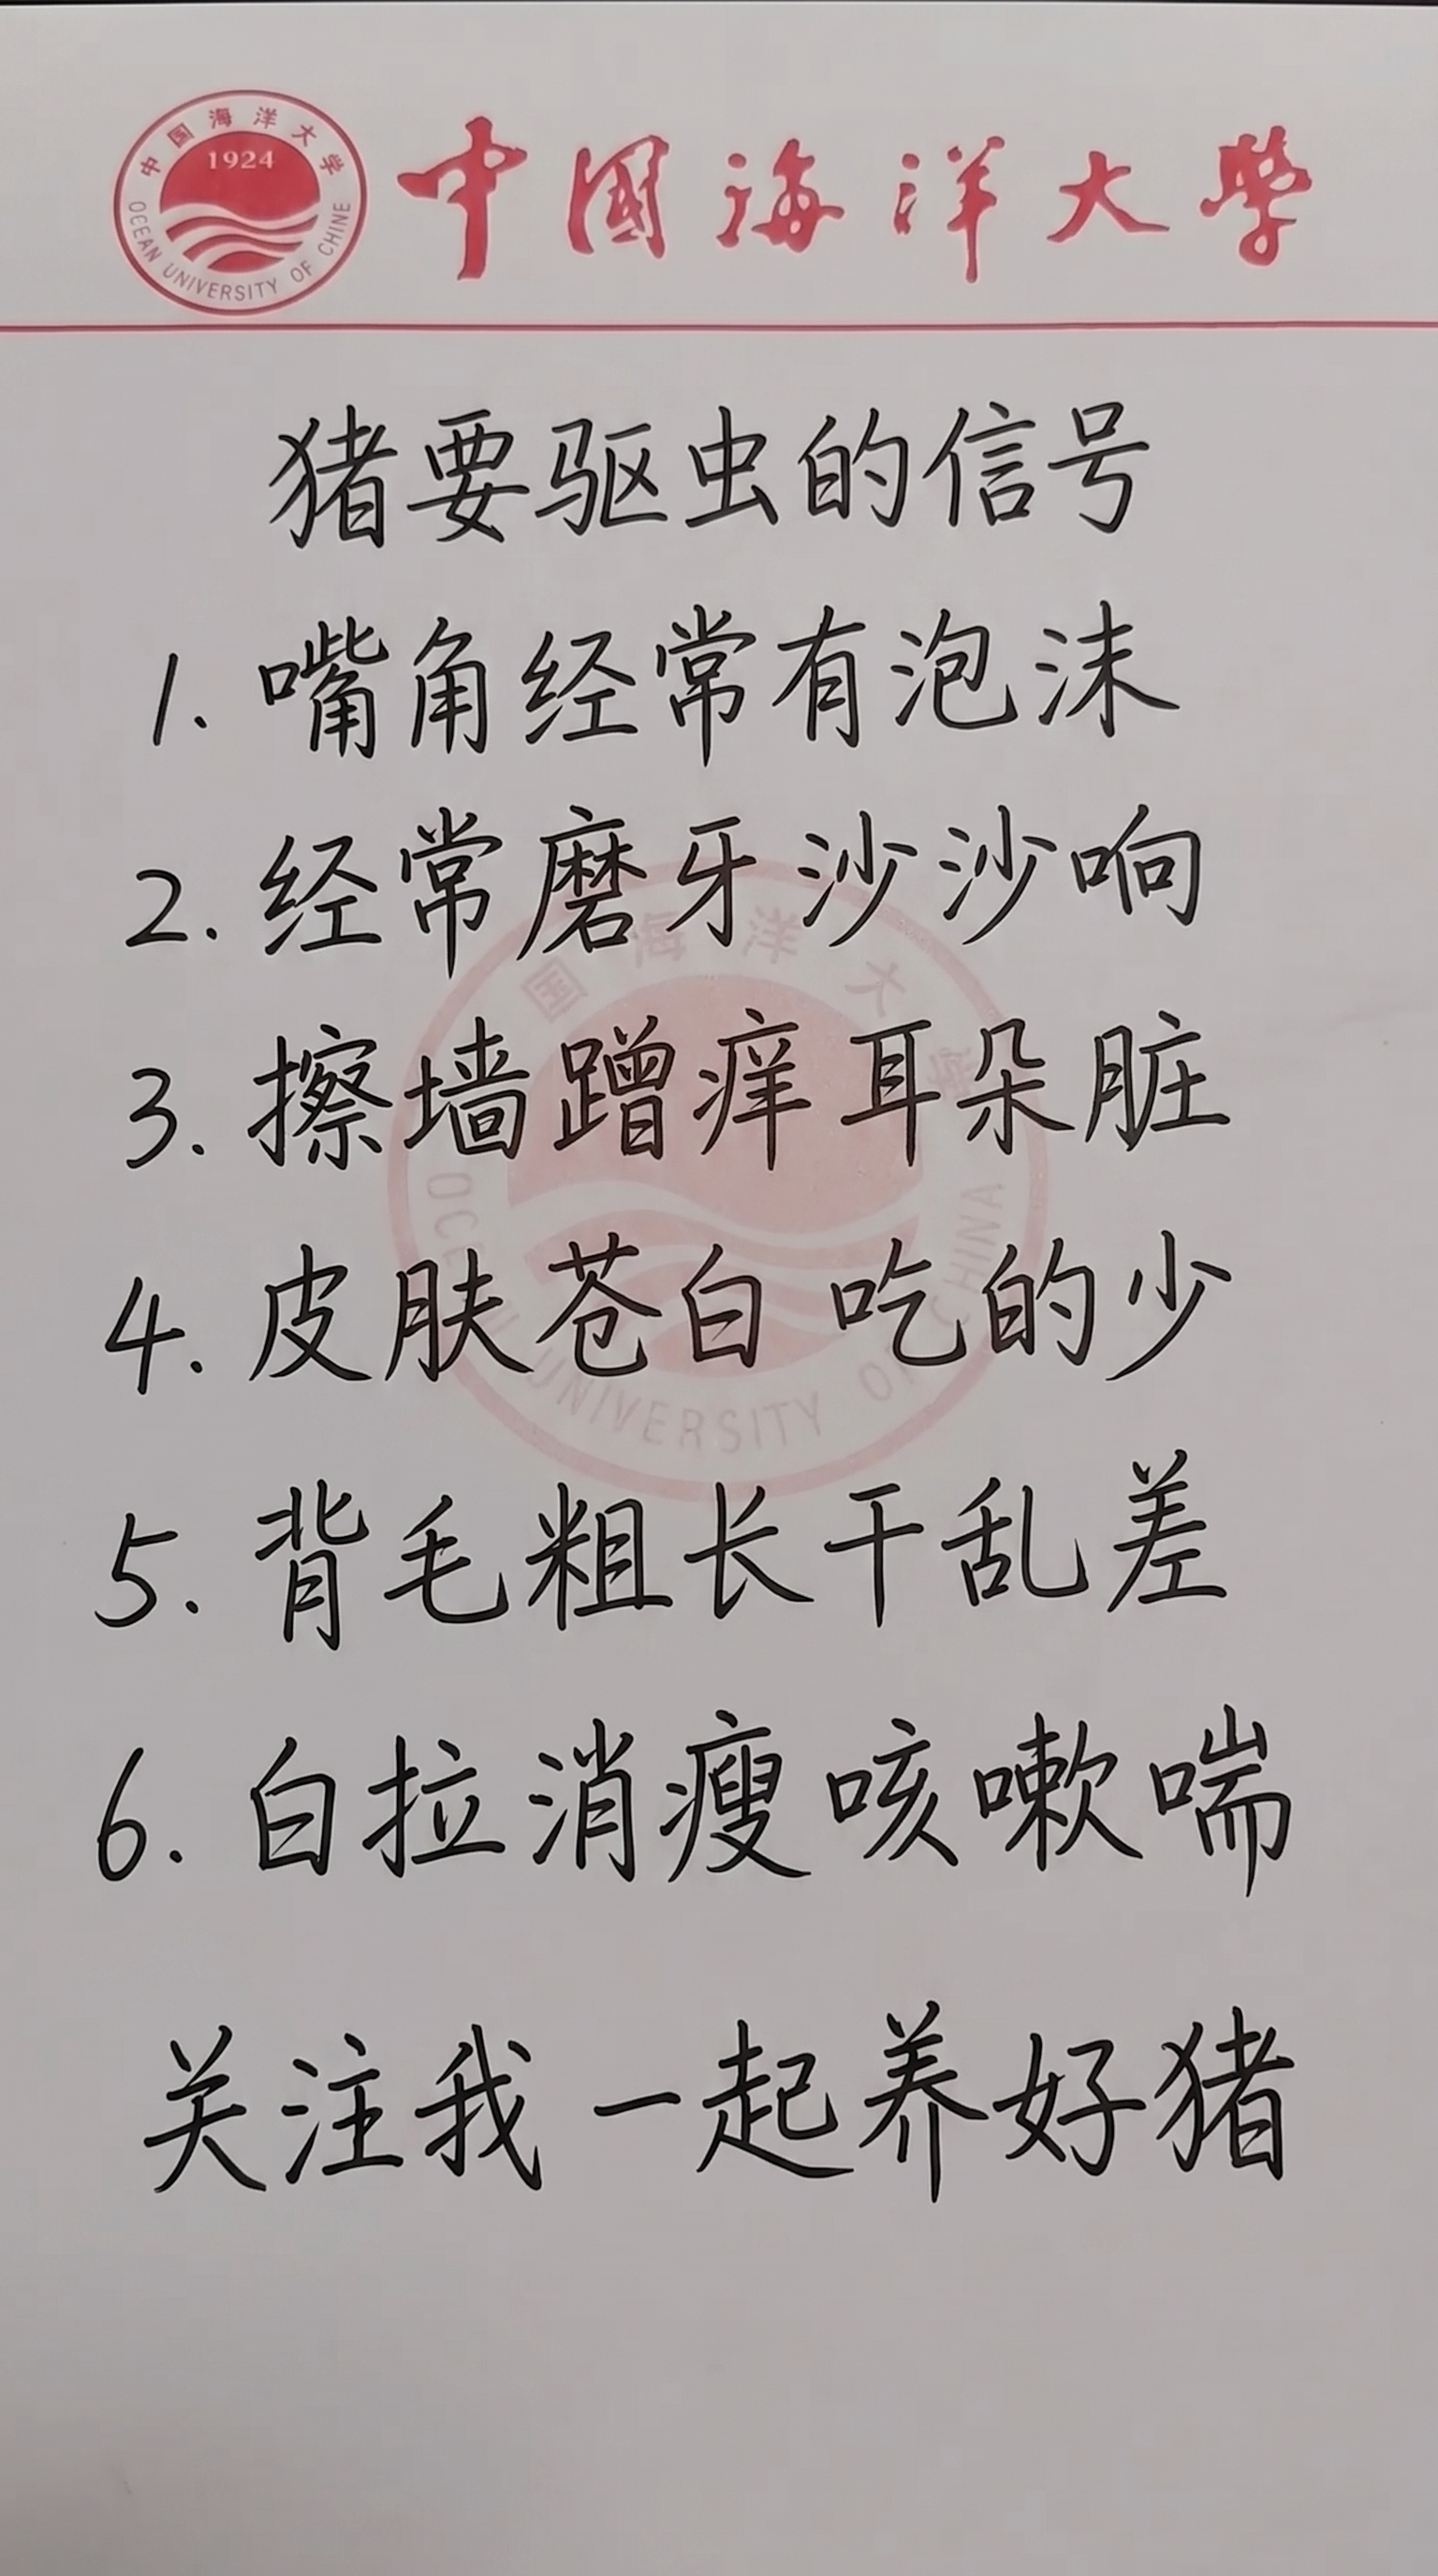 中国海洋大学
1924
OCEAN UNIVERSITY OF CHINE
中國海洋大學
猪要驱虫的信号
1. 嘴角经常有泡沫
2. 经常磨牙沙沙响
3. 擦墙蹭痒 耳朵脏
4. 皮肤苍白 吃的少
5. 背毛粗长干乱差
6. 白拉消瘦咳嗽喘
关注我 一起养好猪
国海洋大学
OCE UNIVERSITY OF CHINA